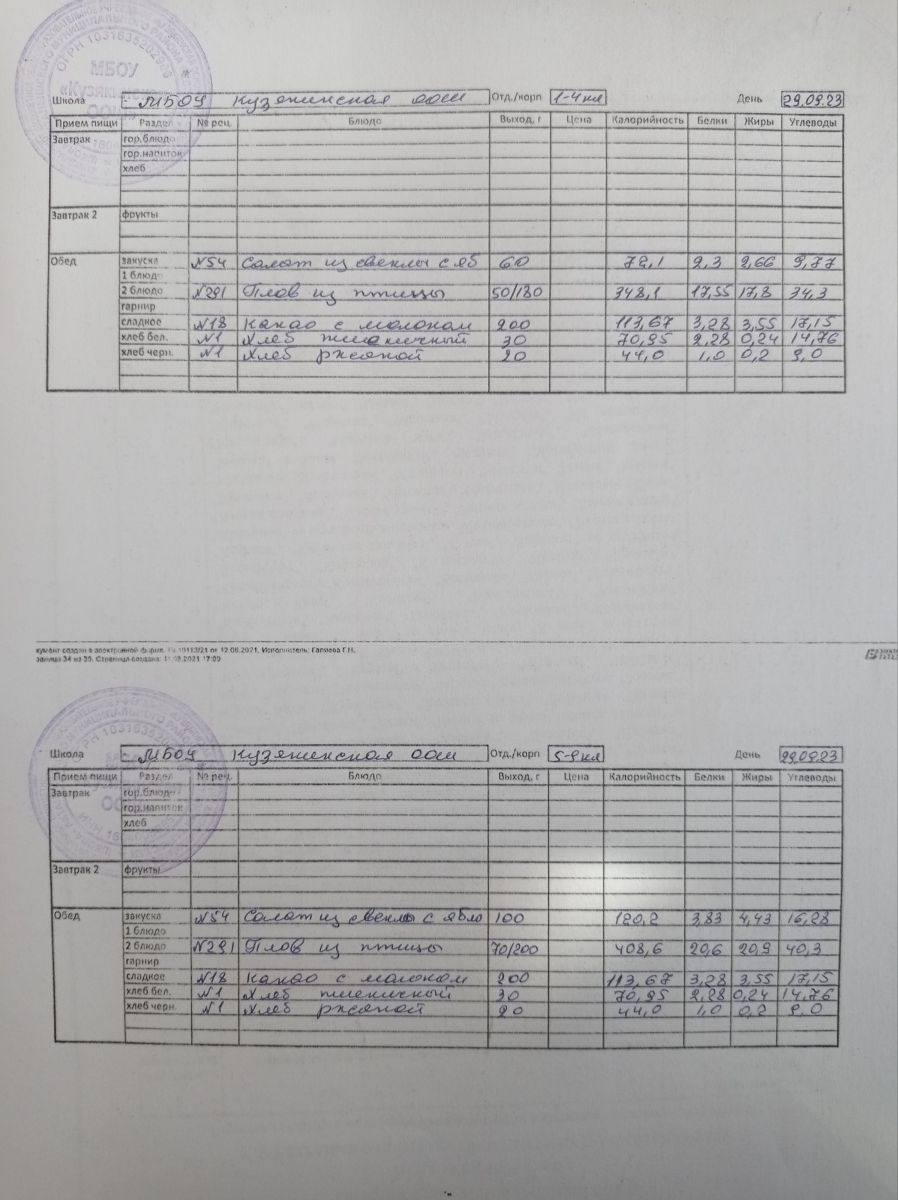 ОГРН 1031635202948
МБОУ
Школа МБОУ Кузякинская оош Отд./корп 1-4 кл День 29.09.23
Прием пищи Раздел № рец. Блюдо Выход, г Цена Калорийность Белки Жиры Углеводы
Завтрак гор.блюдо
гор.напиток
хлеб
Завтрак 2 фрукты
Обед закуска №54 Салат из свеклы с яб 60 72,1 2,3 2,66 9,77
1 блюдо
2 блюдо №291 Плов из птицы 50/180 348,1 17,55 17,8 34,3
гарнир
сладкое №18 Какао с молоком 200 113,67 3,28 3,55 17,15
хлеб бел. №1 Хлеб пшеничный 30 70,95 2,28 0,24 14,76
хлеб черн. №1 Хлеб ржаной 20 44,0 1,0 0,2 9,0
кумент создан в электронной форме. 12.08.2021. Исполнитель: Гапиева Г.Н.
аница 34 из 39. Страница создана: 17:00
Школа МБОУ Кузякинская оош Отд./корп 5-9 кл День 29.09.23
Прием пищи Раздел № рец. Блюдо Выход, г Цена Калорийность Белки Жиры Углеводы
Завтрак гор.блюдо
гор.напиток
хлеб
Завтрак 2 фрукты
Обед закуска №54 Салат из свеклы с ябло 100 120,2 3,83 4,43 16,28
1 блюдо
2 блюдо №291 Плов из птицы 70/200 408,6 20,6 20,9 40,3
гарнир
сладкое №18 Какао с молоком 200 113,67 3,28 3,55 17,15
хлеб бел. №1 Хлеб пшеничный 30 70,95 2,28 0,24 14,76
хлеб черн. №1 Хлеб ржаной 20 44,0 1,0 0,2 9,0